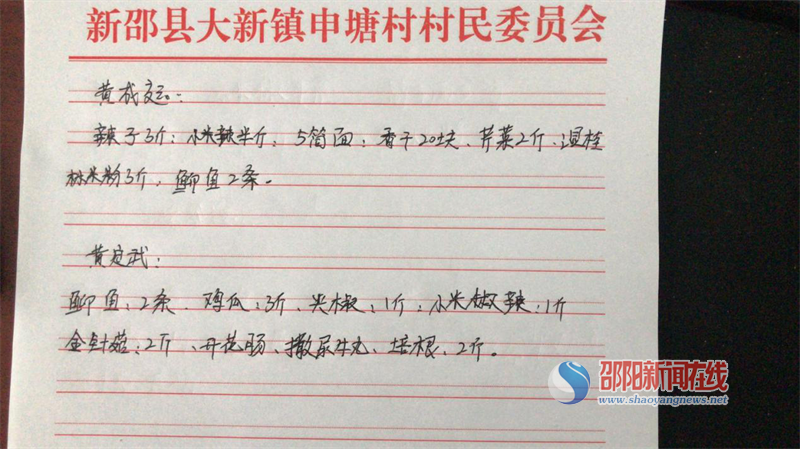 新邵县大新镇申塘村村民委员会
黄成交:
辣子3斤;小米辣半斤;5筒面;香干20块、芹菜2斤、湿桂
林米粉3斤,鲫鱼2条。
黄定武:
鲫鱼:2条、鸡爪:3斤、尖椒:1斤;小米椒辣:1斤
金针菇:2斤、开花肠、撒尿牛丸、培根、2斤。
邵阳新闻在线
www.shaoyangnews.net